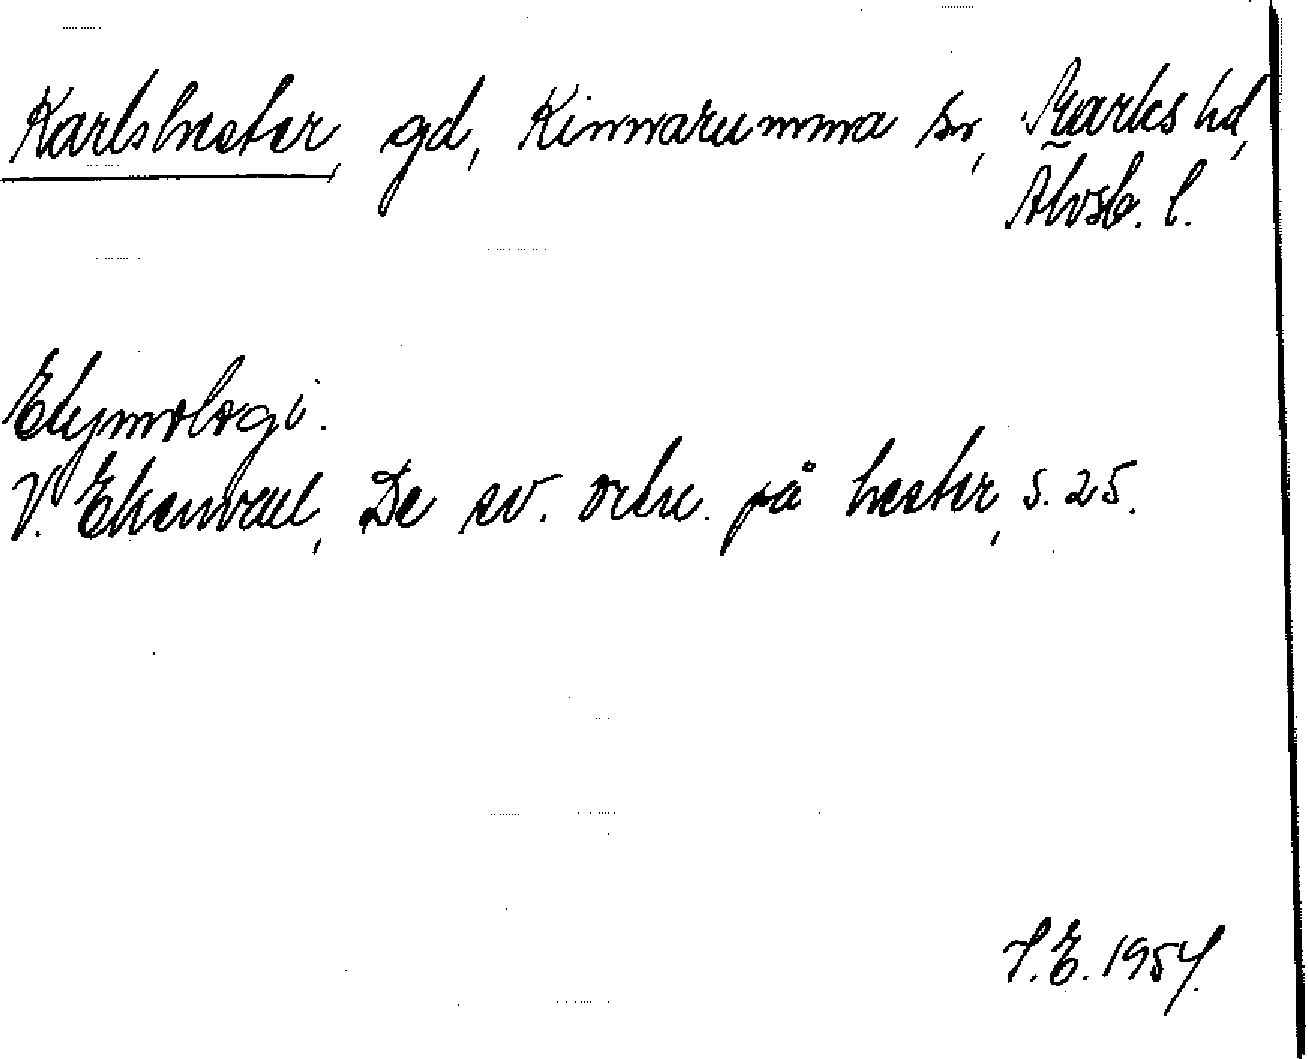 Karlshester, gd, Kinnarumma sn, Marks hd,
Älvsb. l.
Etymologi.
V. Ekenvall, De sv. ortn. på hester, s. 25.
I.E. 1954.